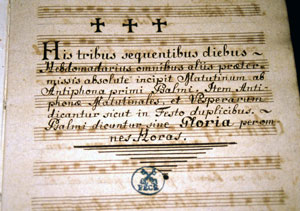 His tribus sequentibus diebus ~
Hebdomadarius omnibus aliis præter-
missis absolute incipit Matutinum ab
Antiphona primi Psalmi, Item Anti-
phonæ Matutinales, et Vesperarum
dicantur sicut in Festo duplicibus. ~
Psalmi dicuntur sine Gloria per om
nes Horas.